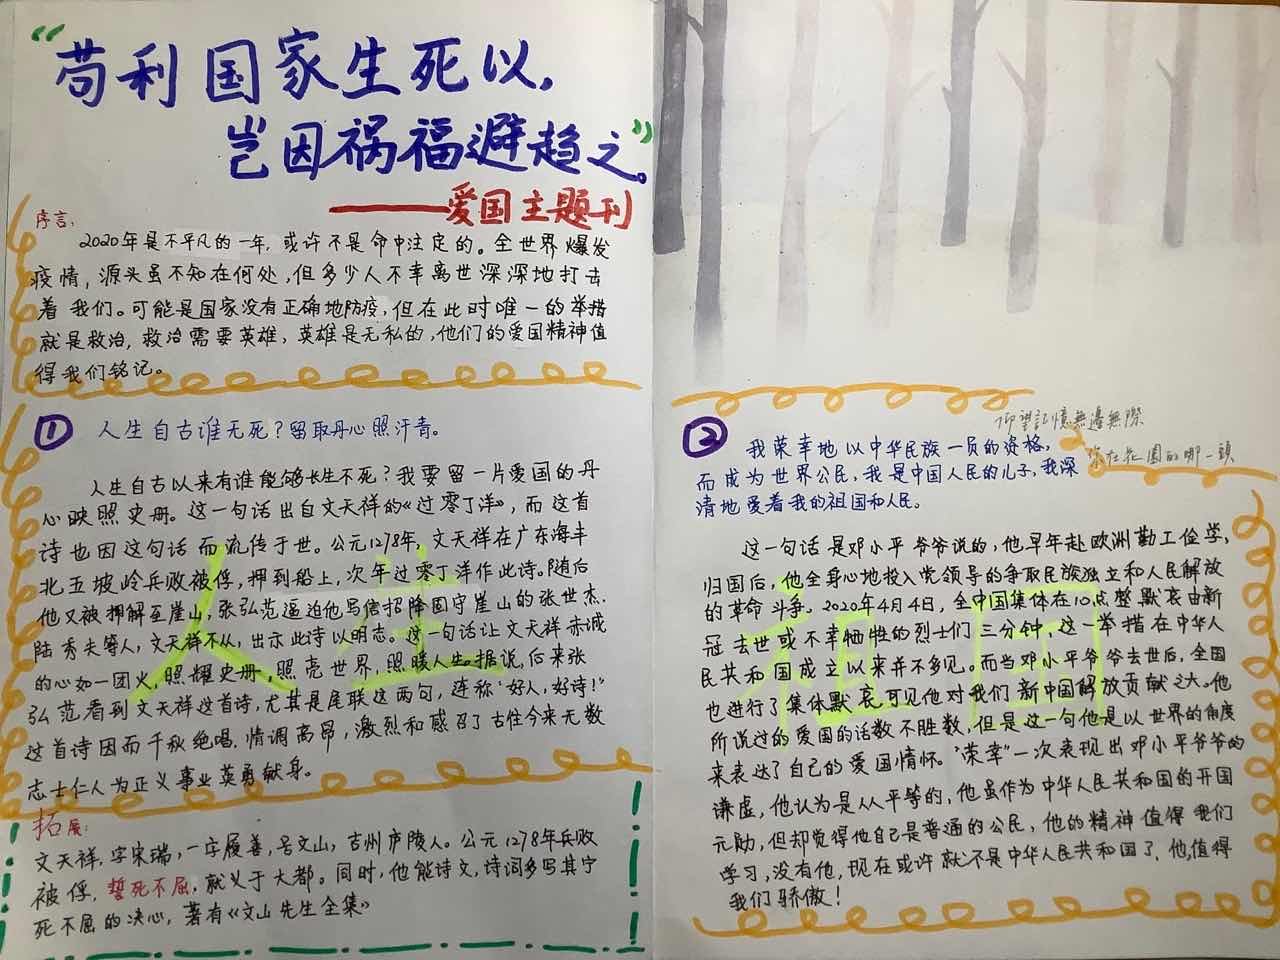 “苟利国家生死以，
岂因祸福避趋之。”
——爱国主题刊
序言：
2020年是不平凡的一年，或许不是命中注定的。全世界爆发
疫情，源头虽不知在何处，但多少人不幸离世深深地打击
着我们。可能是国家没有正确地防疫，但在此时唯一的举措
就是救治，救治需要英雄，英雄是无私的，他们的爱国精神值
得我们铭记。
① 人生自古谁无死？留取丹心照汗青。
人生自古以来有谁能够长生不死？我要留一片爱国的丹
心映照史册。这一句话出自文天祥的《过零丁洋》，而这首
诗也因这句话而流传于世。公元1278年，文天祥在广东海丰
北五坡岭兵败被俘，押到船上，次年过零丁洋作此诗。随后
他又被押解至崖山，张弘范逼迫他写信招降固守崖山的张世杰、
陆秀夫等人，文天祥不从，出示此诗以明志。这一句话让文天祥赤诚
的心如一团火，照耀史册，照亮世界，照暖人生。据说，后来张
弘范看到文天祥这首诗，尤其是尾联这两句，连称“好人，好诗！”
这首诗因而千秋绝唱，情调高昂，激烈和感召了古往今来无数
志士仁人为正义事业英勇献身。
人生
拓展：
文天祥，字宋瑞，一字履善，号文山，吉州庐陵人。公元1278年兵败
被俘，誓死不屈，就义于大都。同时，他能诗文，诗词多写其宁
死不屈的决心，著有《文山先生全集》
仰望記憶無邊無際
你在花園的哪一頭
② 我荣幸地以中华民族一员的资格，
而成为世界公民，我是中国人民的儿子，我深
清地爱着我的祖国和人民。
这一句话是邓小平爷爷说的，他早年赴欧洲勤工俭学，
归国后，他全身心地投入党领导的争取民族独立和人民解放
的革命斗争。2020年4月4日，全中国集体在10点整默哀由新
冠去世或不幸牺牲的烈士们三分钟，这一举措在中华人
民共和国成立以来并不多见。而当邓小平爷爷去世后，全国
也进行了集体默哀，可见他对我们新中国解放贡献之大。他
所说过的爱国的话数不胜数，但是这一句他是以世界的角度
来表达了自己的爱国情怀。“荣幸”一次表现出邓小平爷爷的
谦虚，他认为是人人平等的，他虽作为中华人民共和国的开国
元勋，但却觉得他自己是普通的公民，他的精神值得我们
学习，没有他，现在或许就不是中华人民共和国了，他，值得
我们骄傲！
祖国